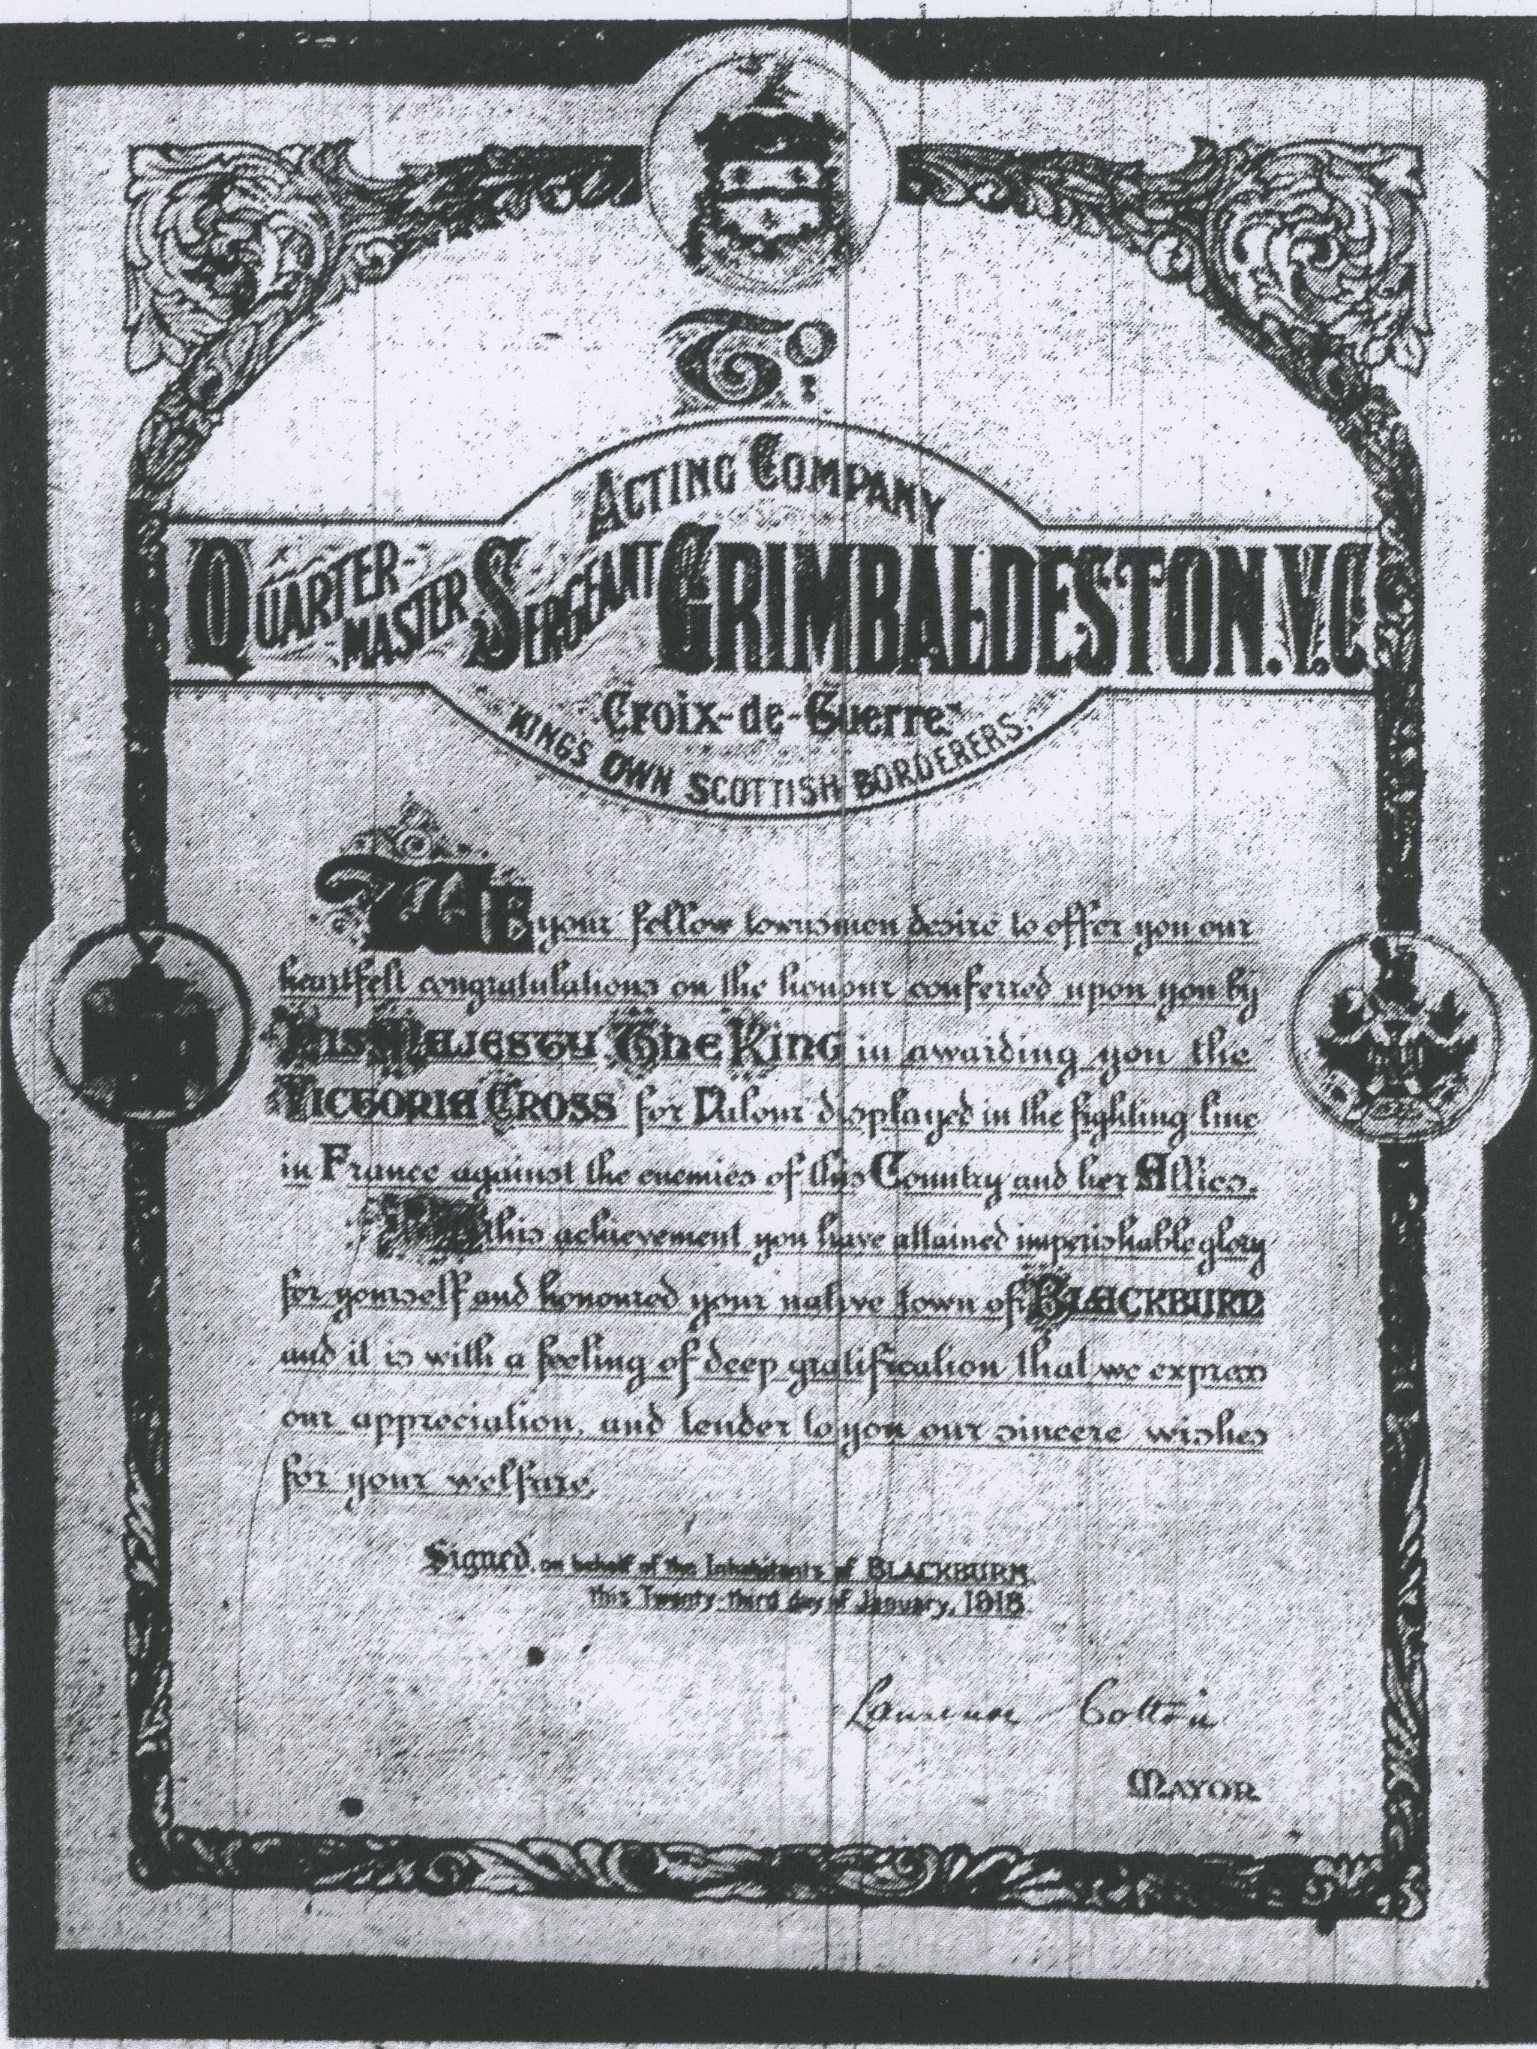 To:
ACTING COMPANY
QUARTER-MASTER SERGEANT GRIMBALDESTON. V.C.
Croix-de-Guerre.
KING'S OWN SCOTTISH BORDERERS.
WE your fellow townsmen desire to offer you our
heartfelt congratulations on the honour conferred upon you by
HIS MAJESTY THE KING in awarding you the
VICTORIA CROSS for Valour displayed in the fighting line
in France against the enemies of this Country and her Allies.
this achievement you have attained imperishable glory
for yourself and honoured your native town of BLACKBURN
and it is with a feeling of deep gratification that we express
our appreciation, and tender to you our sincere wishes
for your welfare.
Signed, on behalf of the Inhabitants of BLACKBURN,
this Twenty-third day of January, 1918.
Lawrence Cotton
MAYOR.